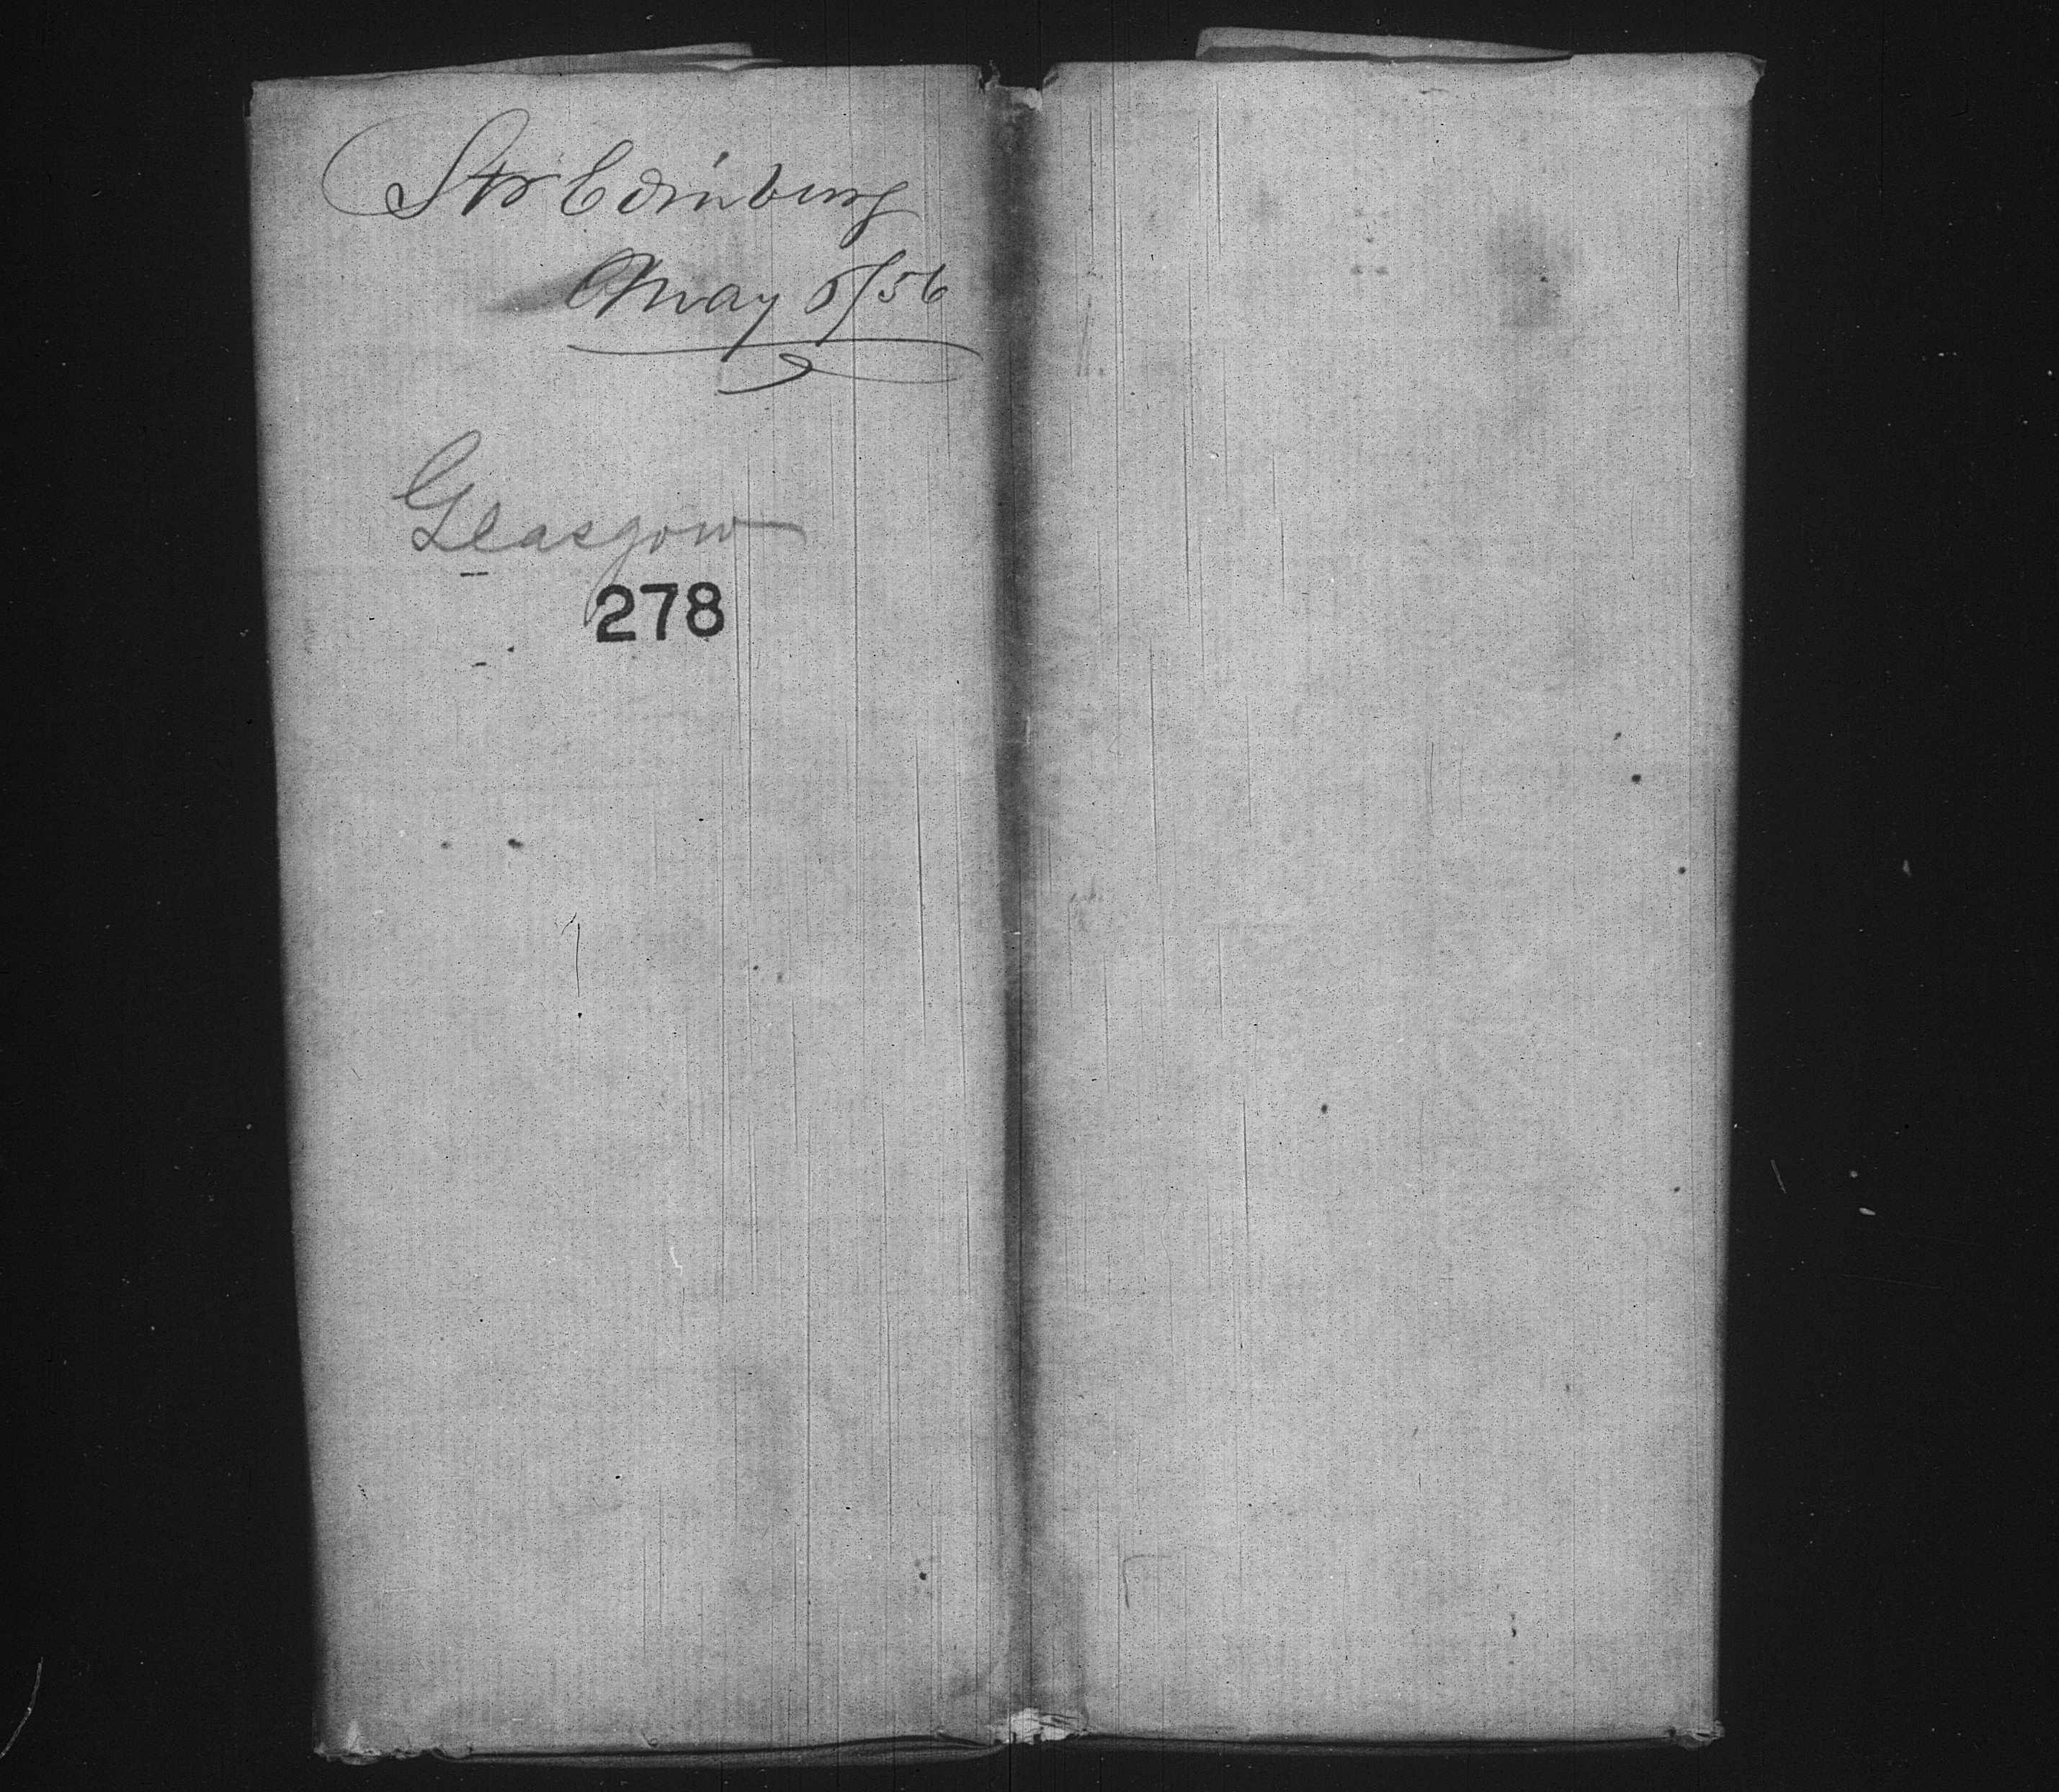 Str Edinburg
May 5/56
Glasgow
278